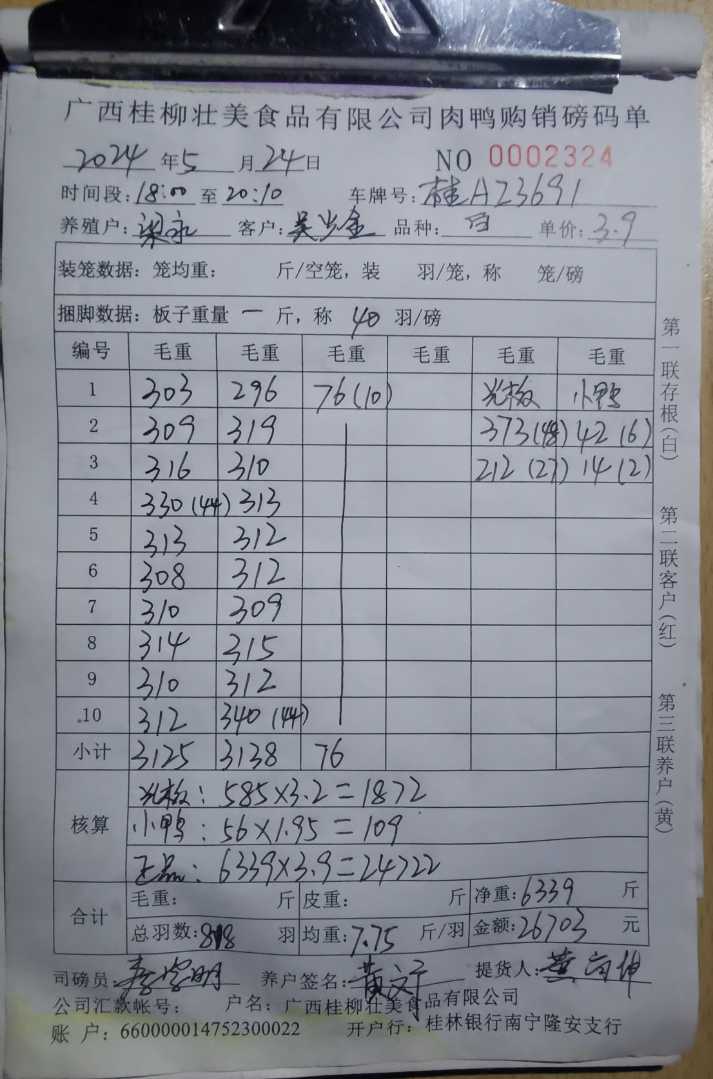 广西桂柳壮美食品有限公司肉鸭购销磅码单
2024 年 5 月 24 日 NO 0002324
时间段: 18:00 至 20:10 车牌号: 桂A23691
养殖户: 梁永 客户: 吴少金 品种: 白 单价: 3.9
装笼数据: 笼均重: 斤/空笼, 装 羽/笼, 称 笼/磅
捆脚数据: 板子重量 一 斤, 称 40 羽/磅
编号 毛重 毛重 毛重 毛重 毛重 毛重
1 303 296 76(10) 光板 小鸭
2 309 319 373(48) 42(6)
3 316 310 212(27) 14(2)
4 330(44) 313
5 313 312
6 308 312
7 310 309
8 314 315
9 310 312
10 312 340(44)
小计 3125 3138 76
核算
光板: 585×3.2=1872
小鸭: 56×1.95=109
正品: 6339×3.9=24722
合计
毛重: 斤 皮重: 斤 净重: 6339 斤
总羽数: 818 羽 均重: 7.75 斤/羽 金额: 26703 元
司磅员: 养户签名: 黄 提货人: 黄
公司汇款帐号: 户名: 广西桂柳壮美食品有限公司
账 户: 660000014752300022 开户行: 桂林银行南宁隆安支行
第一联存根(白)
第二联客户(红)
第三联养户(黄)